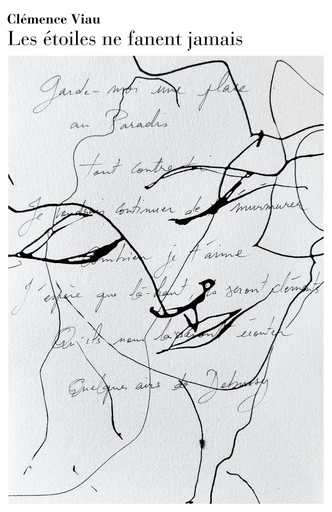 Clémence Viau
Les étoiles ne fanent jamais
Garde-moi une place
au Paradis
tout contre toi
Je voudrais continuer de murmurer
Combien je t'aime
J'espère que là-haut ils seront cléments
Qu'ils nous laisseront écouter
Quelques airs de Debussy